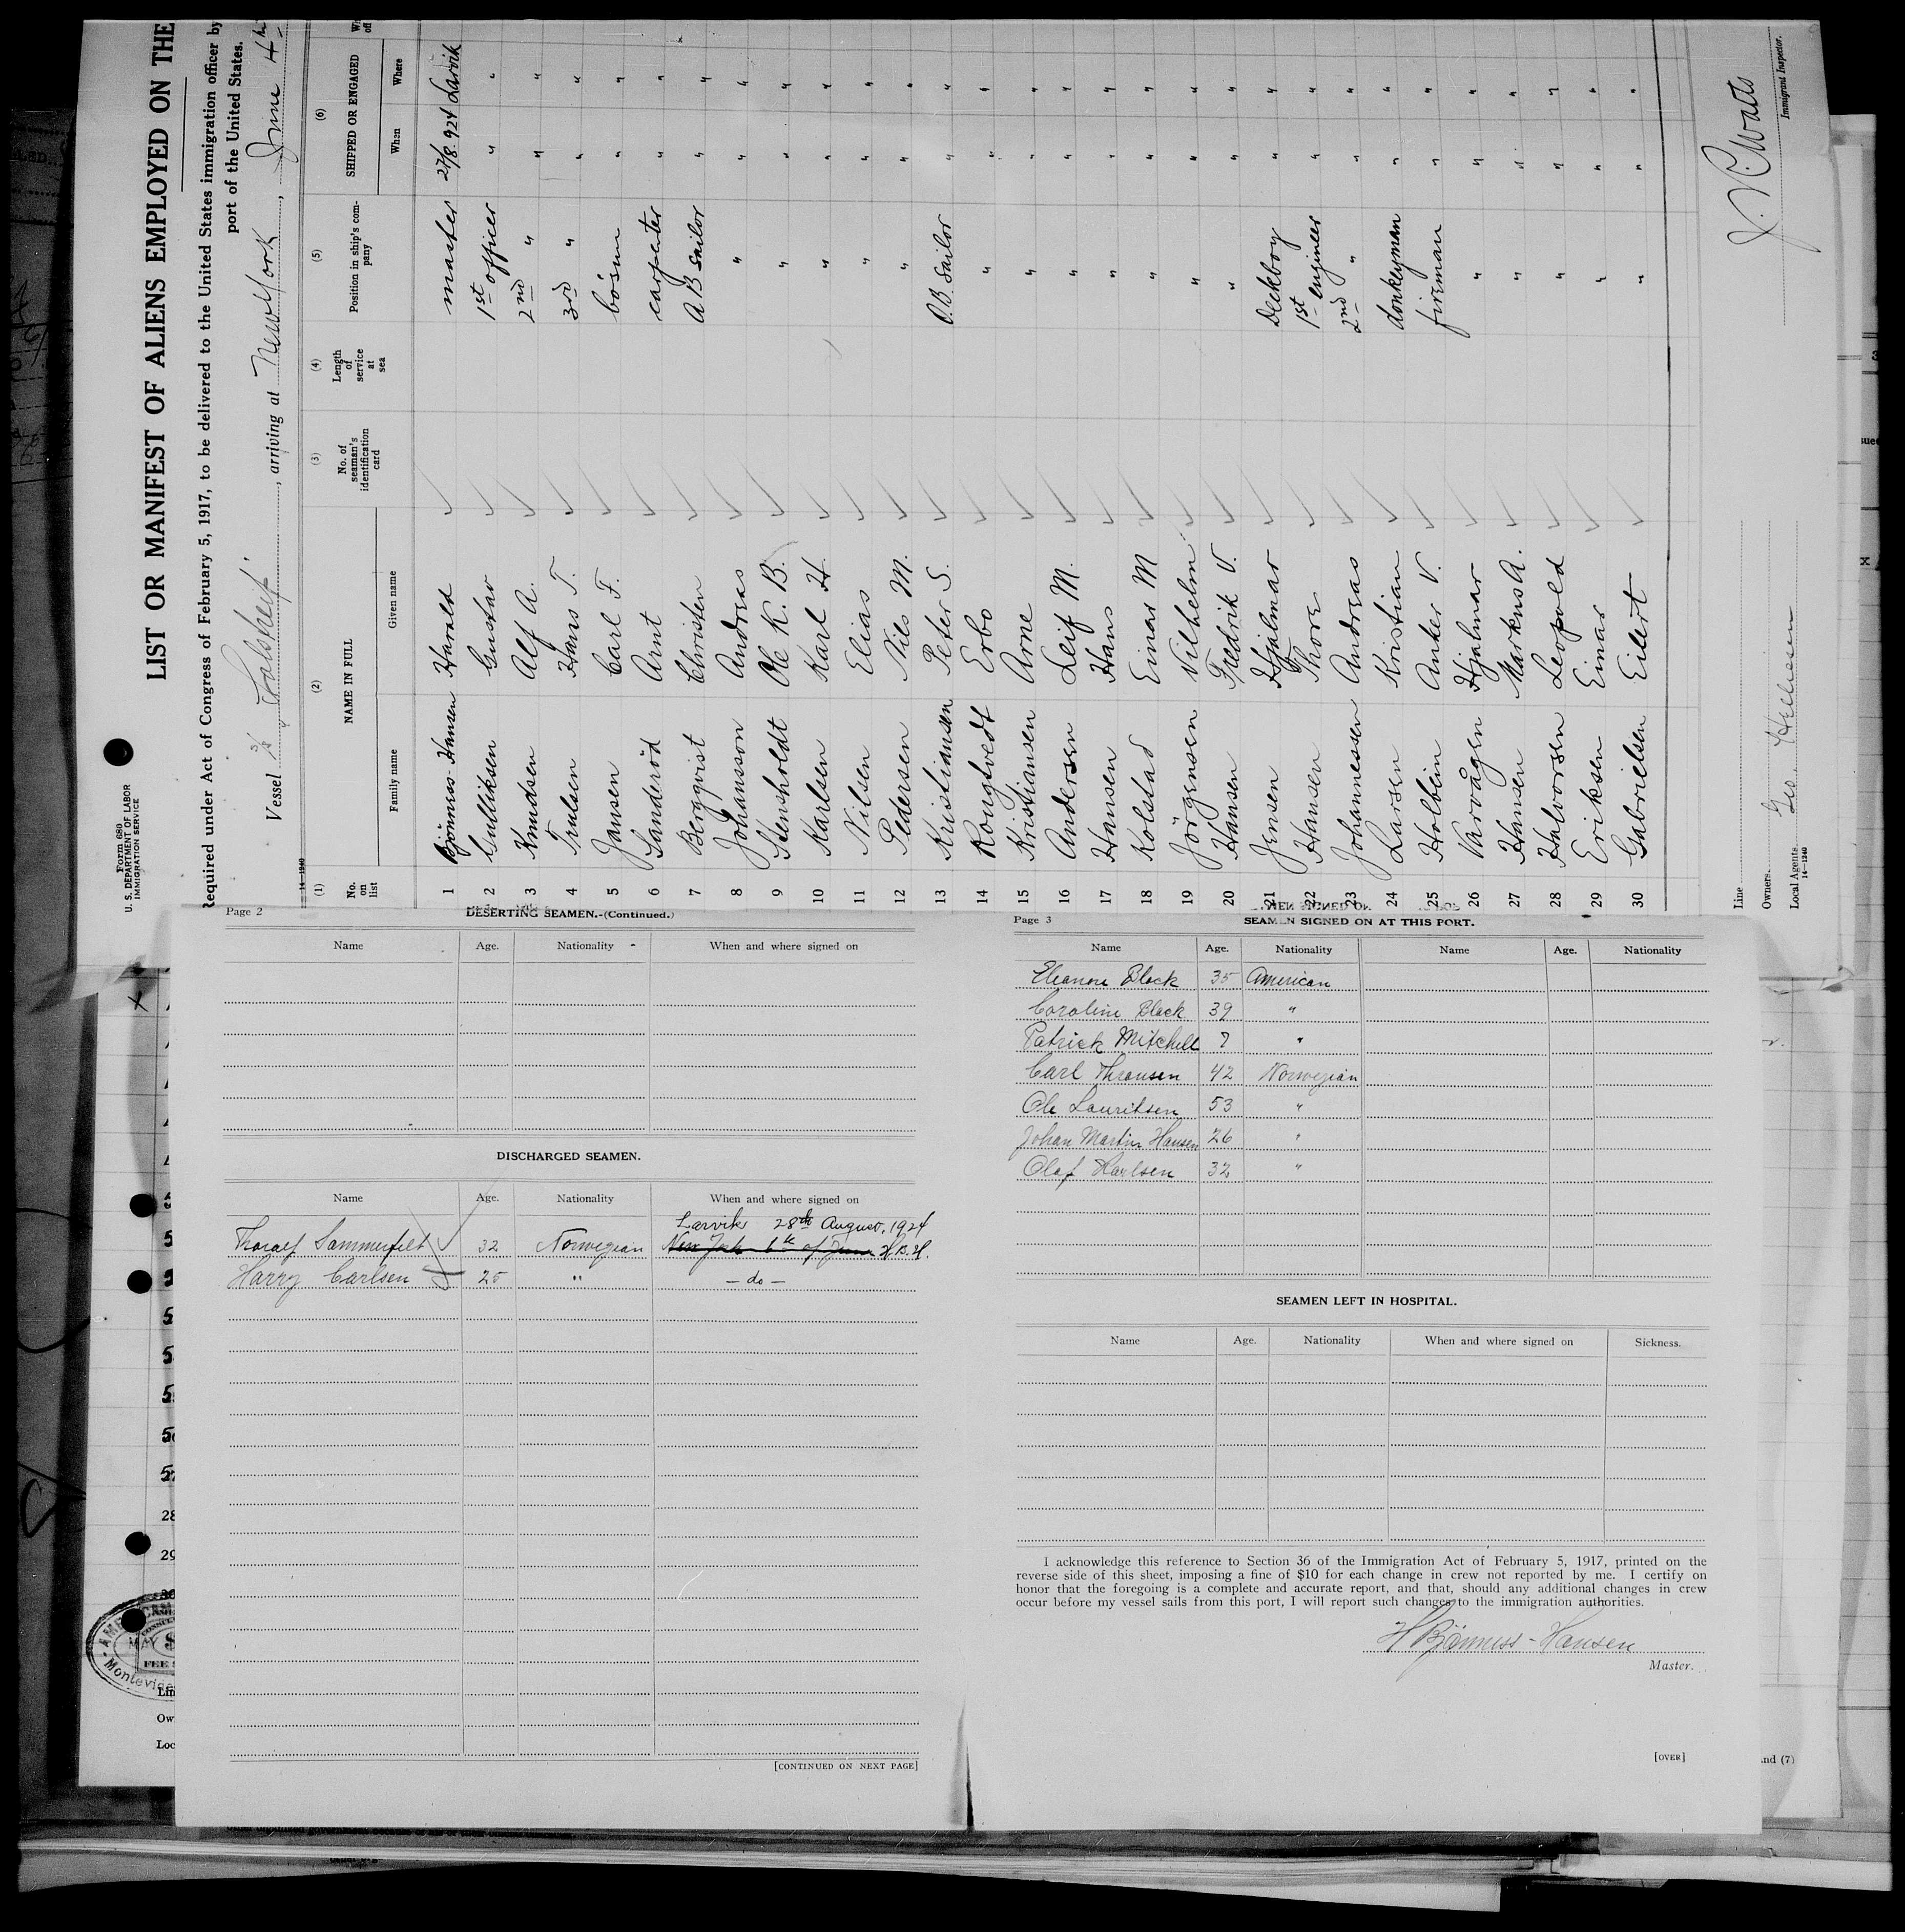 Form 680
U. S. DEPARTMENT OF LABOR
IMMIGRATION SERVICE
LIST OR MANIFEST OF ALIENS EMPLOYED ON THE
Required under Act of Congress of February 5, 1917, to be delivered to the United States immigration officer by
port of the United States.
Vessel S/S , arriving at New York , June 4th
14—1240
(1) (2) (3) (4) (5) (6)
No. on list NAME IN FULL No. of seaman's identification card Length of service at sea Position in ship's company SHIPPED OR ENGAGED
Family name Given name When Where
1 Bjönness-Hansen Harald master 27/8. 924 Larvik
2 Gulliksen Gustav 1st officer " "
3 Knudsen Alf A. 2nd " " "
4 Trulsen Hans T. 3rd " " "
5 Jansen Carl F. bosun " "
6 Sanderöd Arnt carpenter " "
7 Bergqvist Christen A B Sailor " "
8 Johansson Andreas " " "
9 Stensholdt Ole K. B. " " "
10 Karlsen Karl H. " " "
11 Nilsen Elias " " "
12 Pedersen Nils M. " " "
13 Kristiansen Peter S. O.B. Sailor " "
14 Rongtvedt Erbo " " "
15 Kristiansen Arne " " "
16 Andersen Leif M. " " "
17 Hansen Hans " " "
18 Kolstad Einar M " " "
19 Jörgensen Vilhelm " " "
20 Hansen Fredrik V. " " "
21 Jensen Hjalmar Deckboy " "
22 Hansen Thore 1st engineer " "
23 Johannessen Andreas 2nd " " "
24 Larsen Kristian donkeyman " "
25 Holbein Anker V. fireman " "
26 Varvågen Hjalmar " " "
27 Hansen Markus A. " " "
28 Halvorsen Leopold " " "
29 Eriksen Einar " " "
30 Gabrielsen Eilert " " "
Line
Owners.
Local Agents. Geo.
14—1240
J. P. Watts
Immigrant Inspector.
Page 2
DESERTING SEAMEN.-(Continued.)
Name Age. Nationality When and where signed on
DISCHARGED SEAMEN.
Name Age. Nationality When and where signed on
Larvik 28th August, 1924
Thoralf Sommerfelt 32 Norwegian New York 6th of June H.B.H.
Harry Carlsen 25 " — do —
[CONTINUED ON NEXT PAGE]
Page 3
SEAMEN SIGNED ON AT THIS PORT.
Name Age. Nationality Name Age. Nationality
Eleanore Block 35 American
Caroline Block 39 "
Patrick Mitchell 7 "
Carl Theonsen 42 Norwegian
Ole Lauritsen 53 "
Johan Martin Hansen 26 "
Olaf Karlsen 32 "
SEAMEN LEFT IN HOSPITAL.
Name Age. Nationality When and where signed on Sickness.
I acknowledge this reference to Section 36 of the Immigration Act of February 5, 1917, printed on the
reverse side of this sheet, imposing a fine of $10 for each change in crew not reported by me. I certify on
honor that the foregoing is a complete and accurate report, and that, should any additional changes in crew
occur before my vessel sails from this port, I will report such changes to the immigration authorities.
H Bjönness-Hansen
Master.
[OVER]
nd (7)
28
29
30
MAY
FEE
Montevide
Lin
Ow
Loc